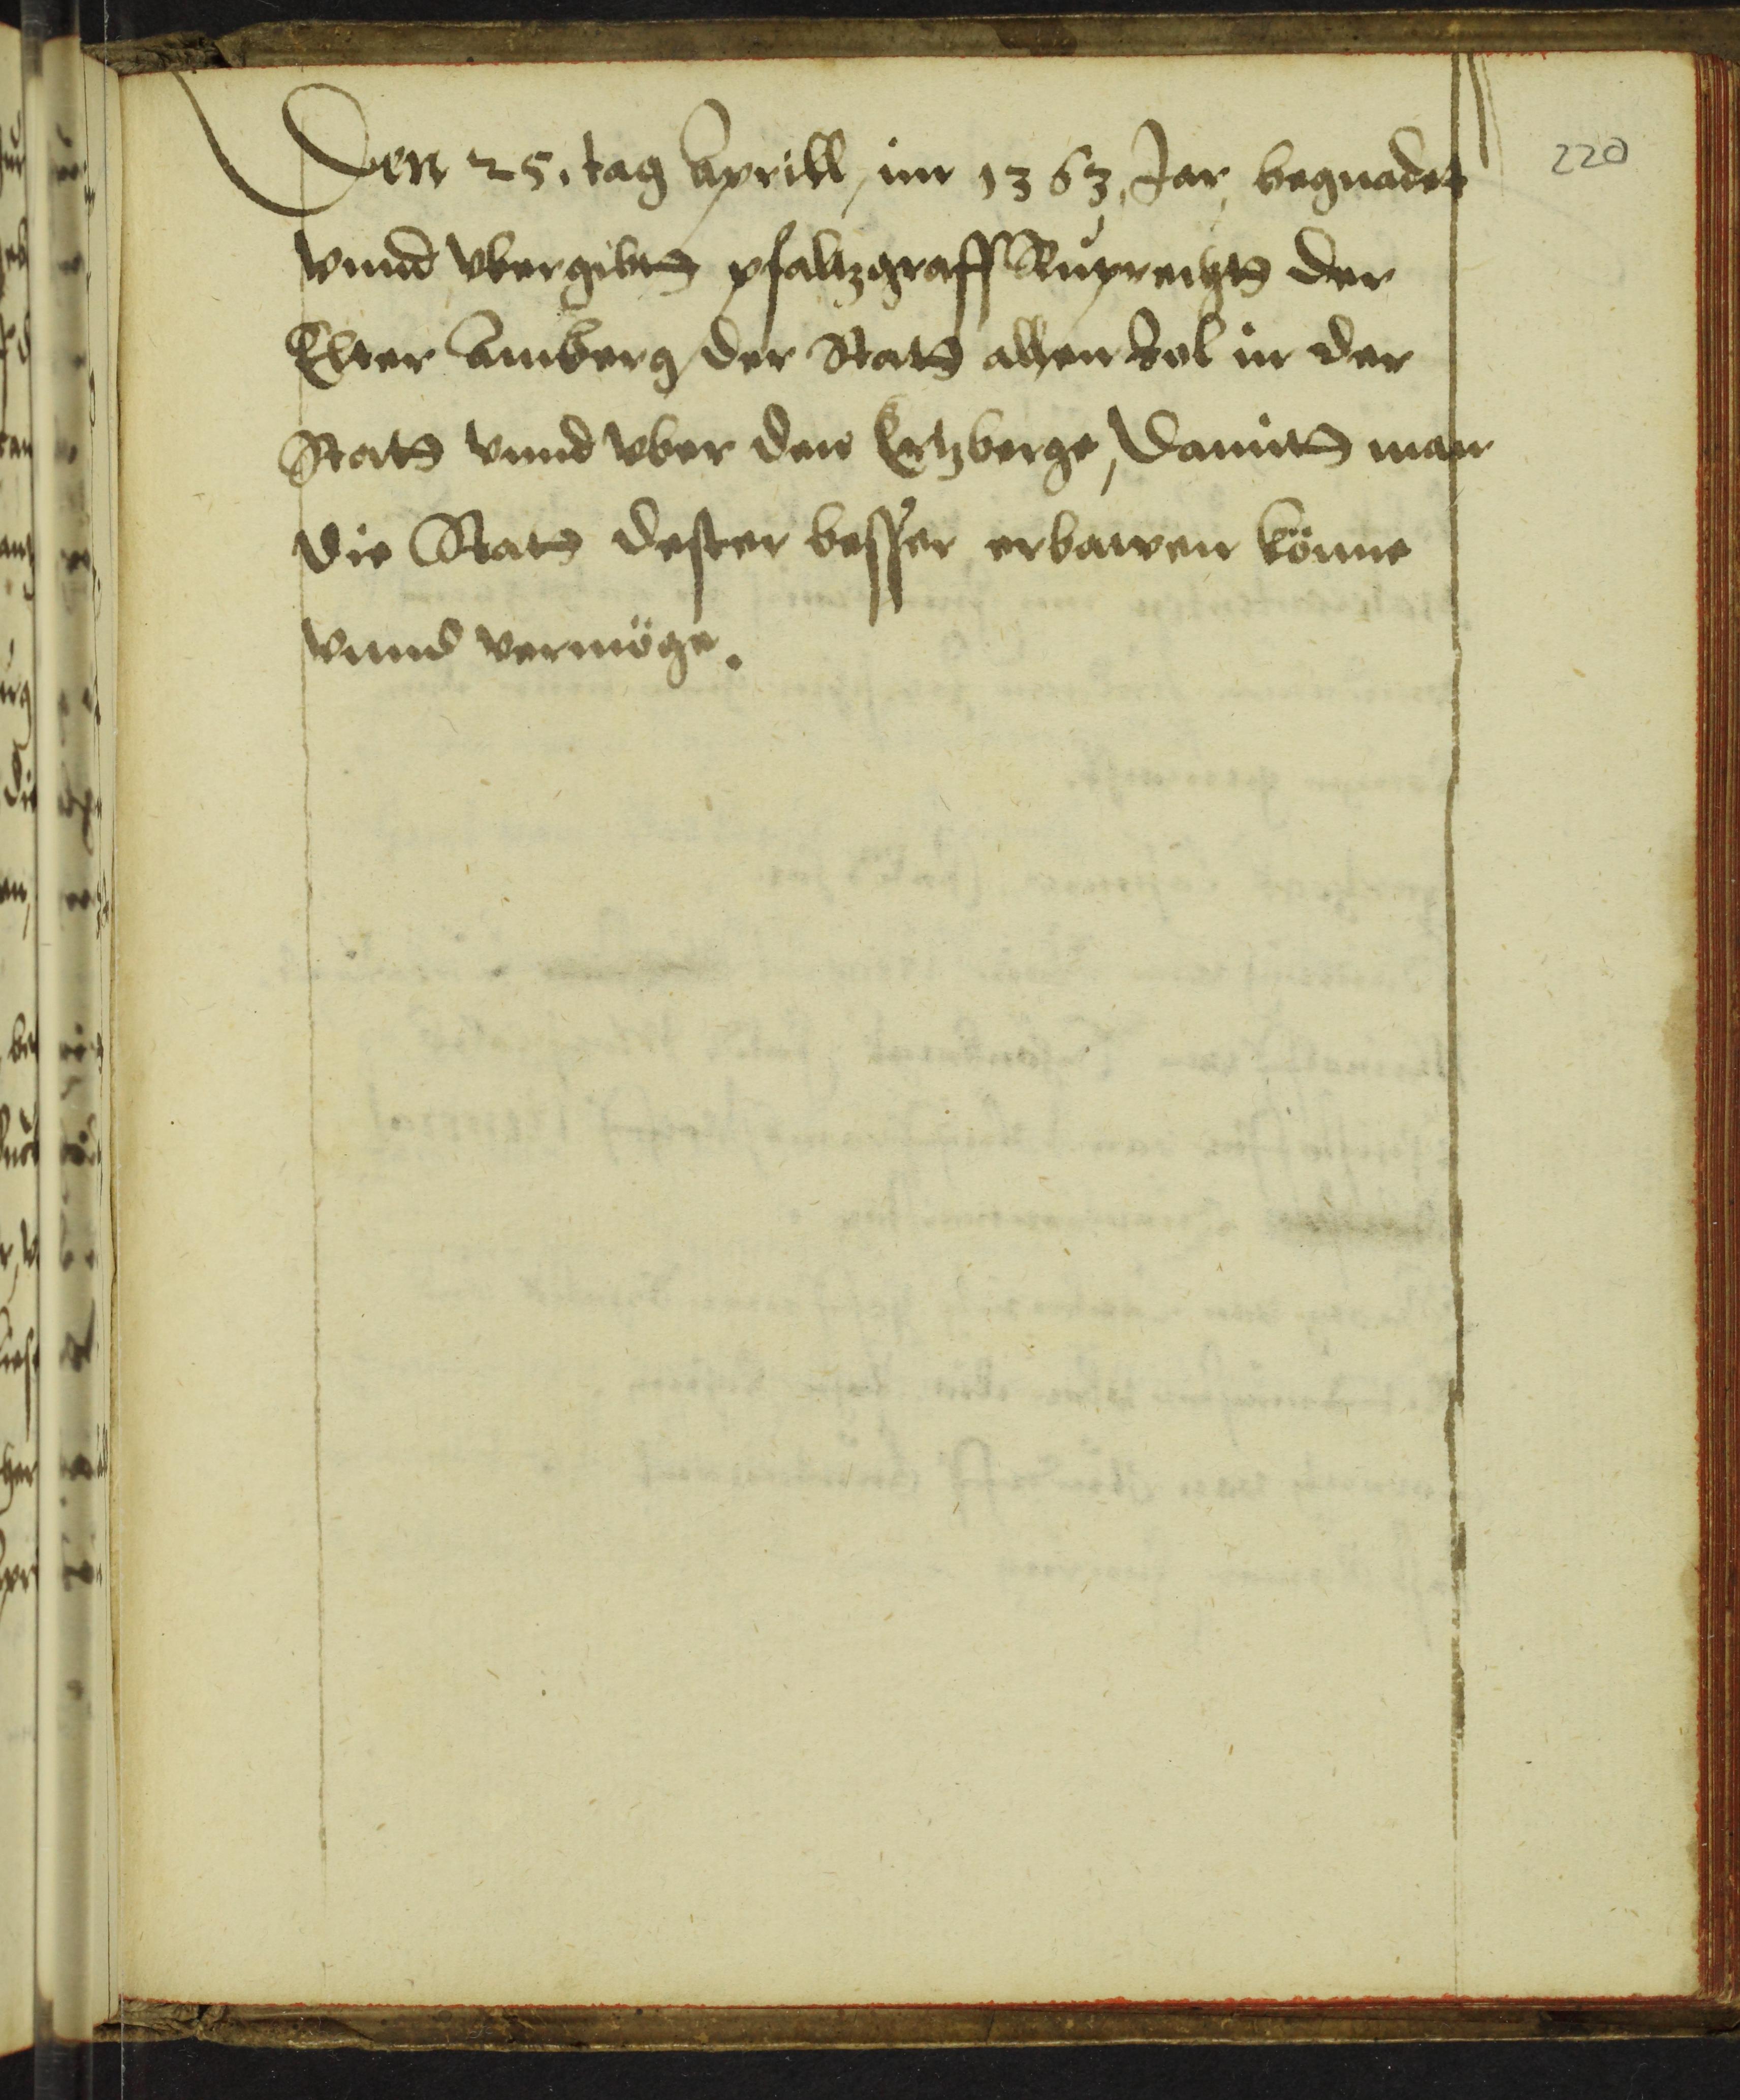 220
Den 25. tag Aprill, im 1363. Jar, begnadet
vnnd vbergibtt pfaltzgraff Ruprechtt der
Elter Amberg der Statt allen Zol in der
Statt vnnd vber den Ertzberge, damitt man
die Statt dester besser erbawen könne
vnnd vermöge.